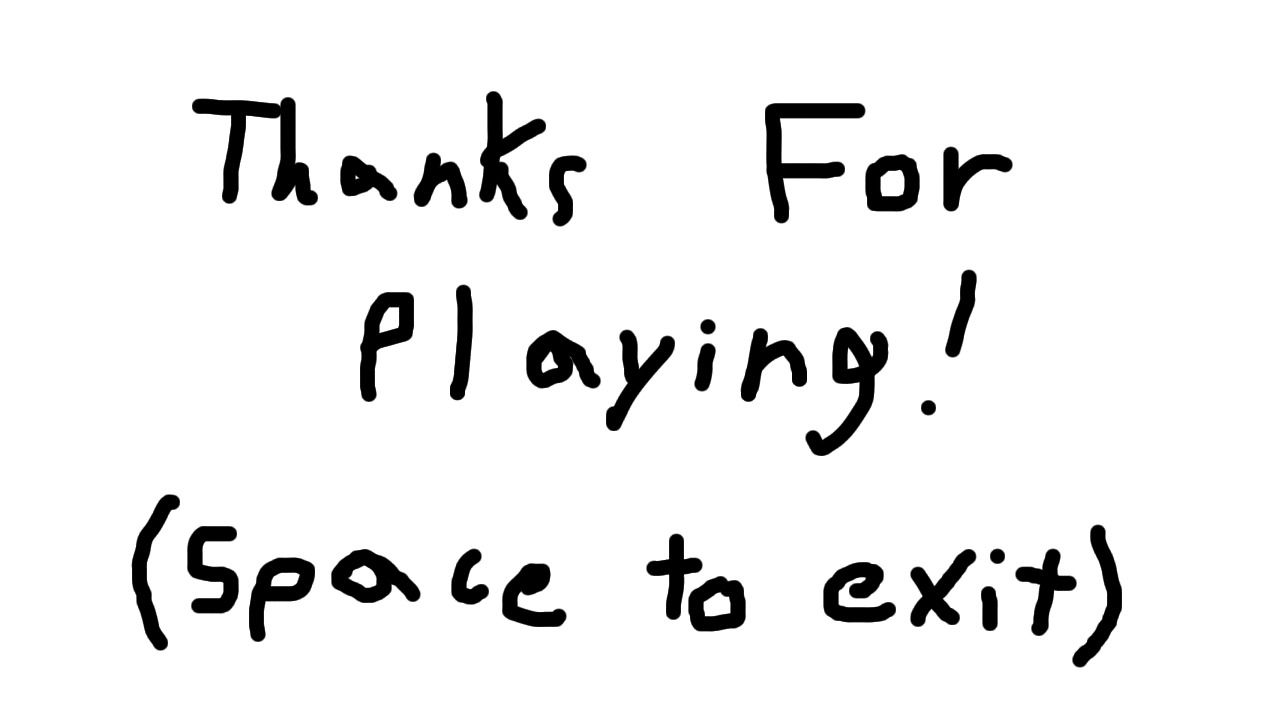 Thanks For
Playing!
(Space to exit)